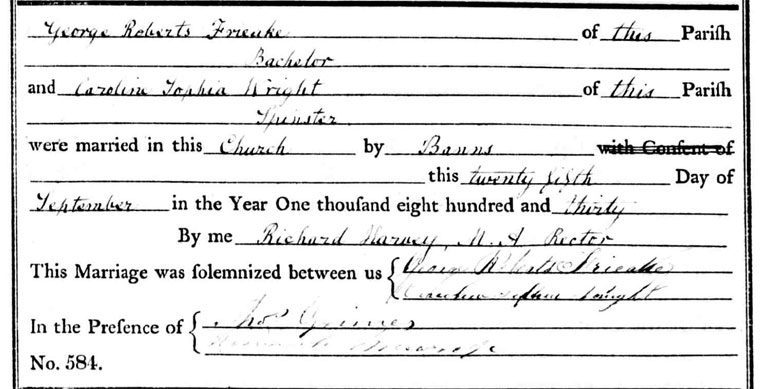 George Roberts Frienke of this Pariſh
Bachelor
and Caroline Sophia Wright of this Pariſh
Spinster
were married in this Church by Banns with Conſent of
this twenty fifth Day of
September in the Year One thouſand eight hundred and thirty
By me Richard Harvey, M.A. Rector
This Marriage was ſolemnized between us George Roberts
Wright
In the Preſence of Thos Grimes
No. 584.